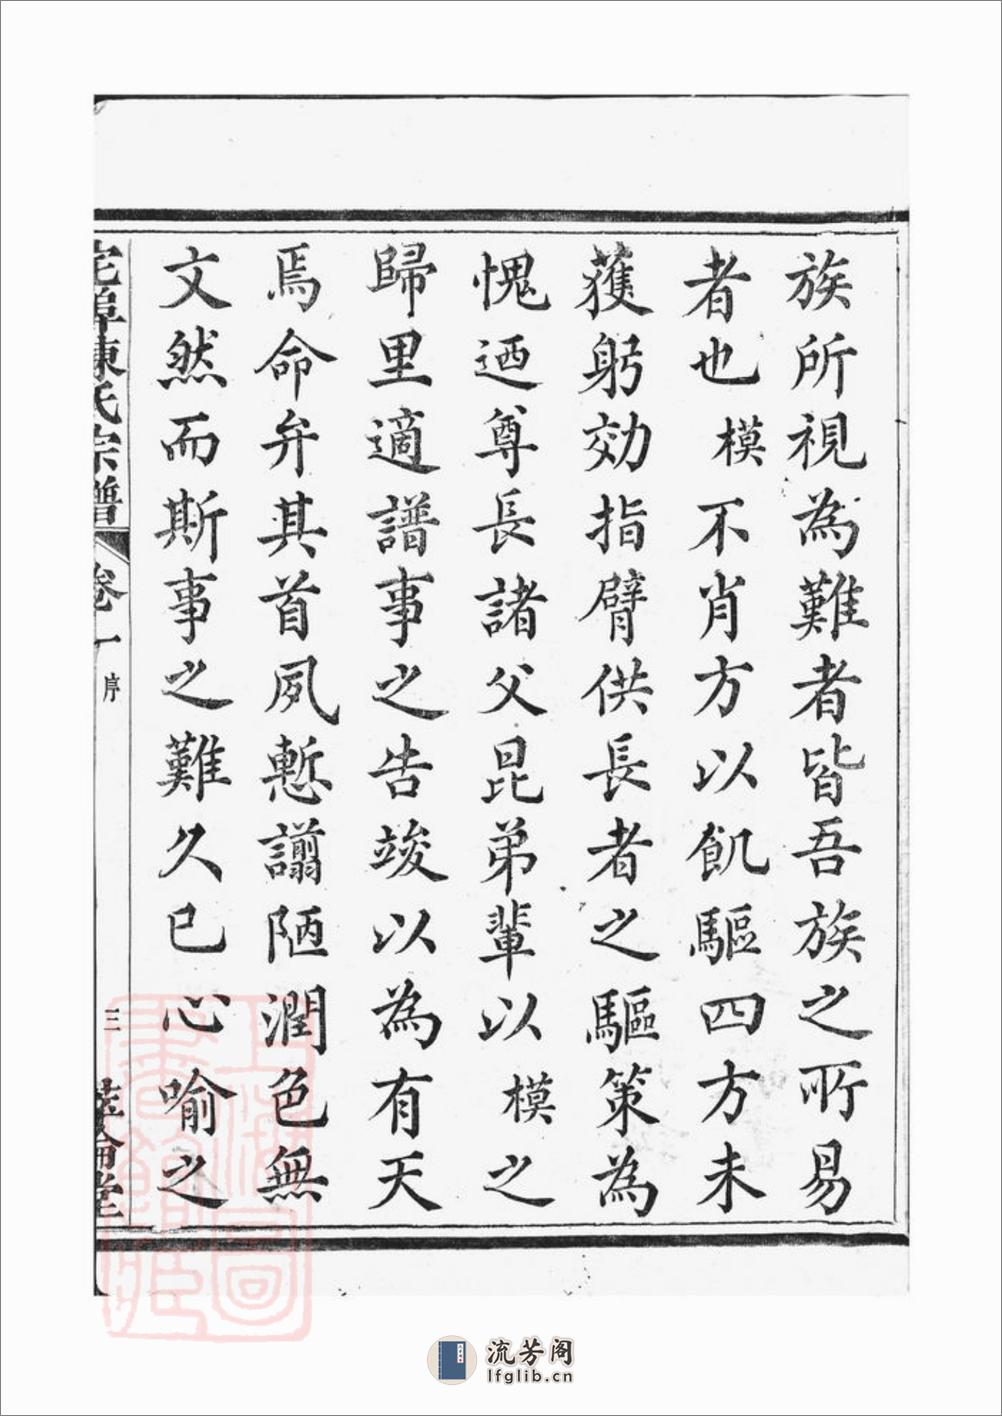 族所視為難者皆吾族之所易
者也模不肖方以飢驅四方未
獲躬効指臂供長者之驅策為
愧迺尊長諸父昆弟輩以模之
歸里適譜事之告竣以為有天
焉命弁其首夙慙謭陋潤色無
文然而斯事之難久已心喻之
陳氏宗譜
卷一
序
三
流芳阁
lfglib.cn